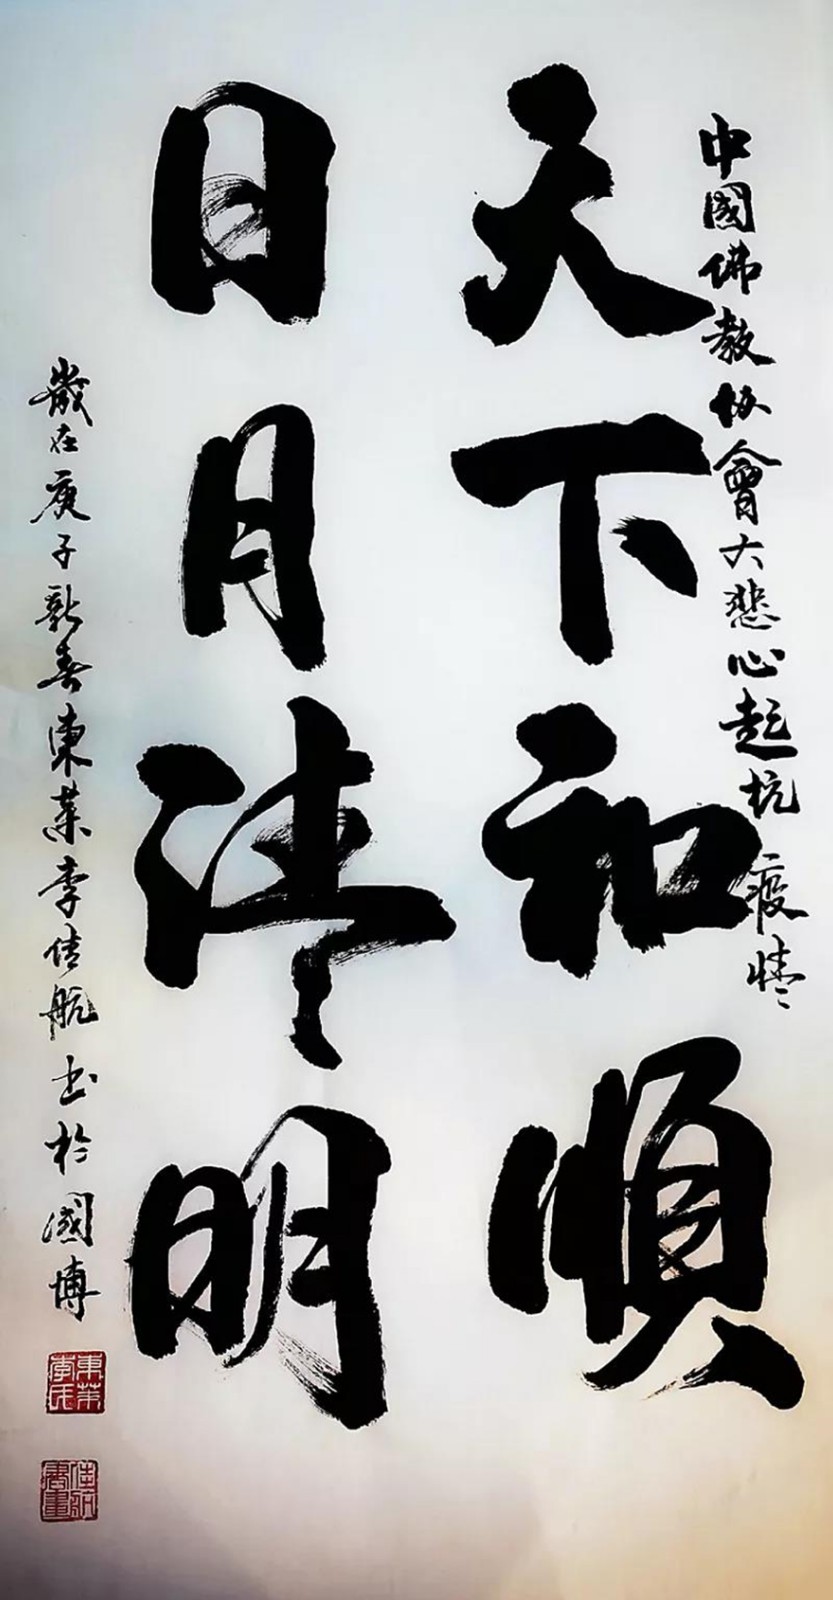 中國佛教协會大悲心起抗疫情
天下和順
日月清明
歲在庚子新春東莱李佳航书於國博
東莱李氏
佳航書畫